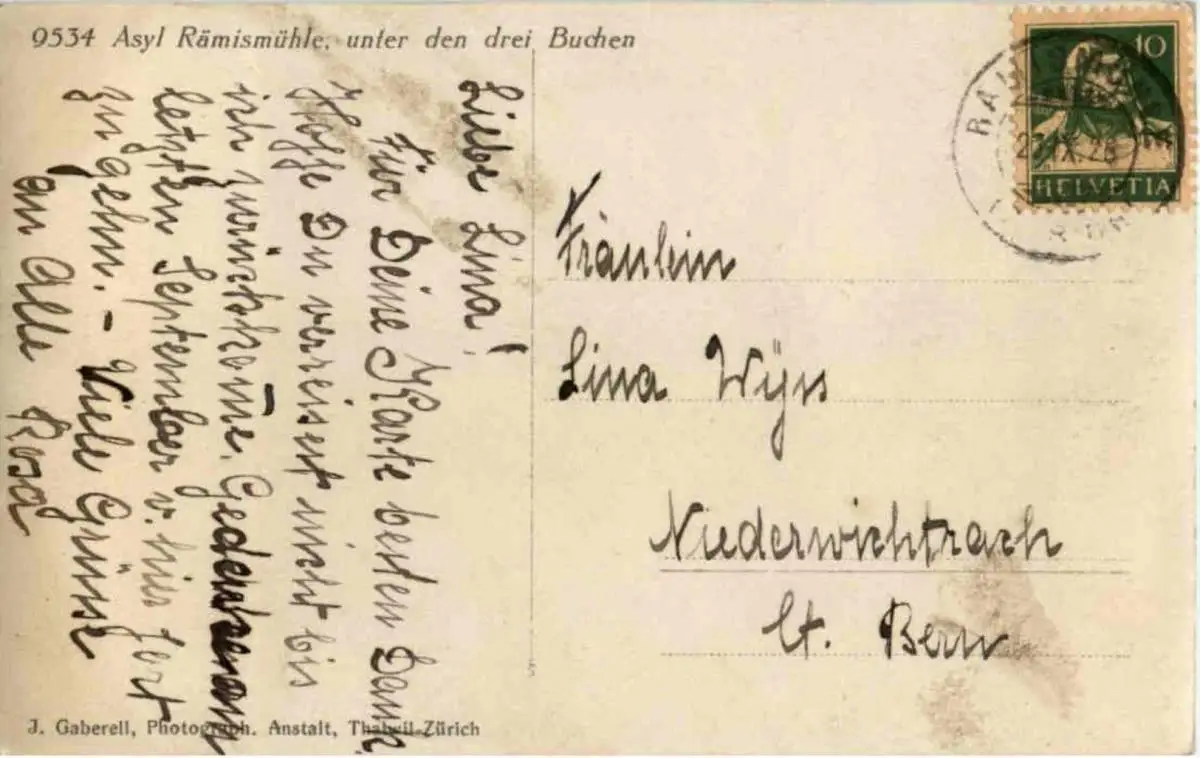 9534 Asyl Rämismühle, unter den drei Buchen
Liebe Lina!
Für Deine Karte besten Dank
Hoffe Du verreisest nicht bis
ich zurückkom̄e. Gedenke
letzten September v. hier fort
zu gehn. - Viele Grüsse
an Alle Rosa
Fräulein
Lina Wyss
Niederwichtrach
Ct. Bern
10
HELVETIA
J. Gaberell, Photograph. Anstalt, Thalwil-Zürich